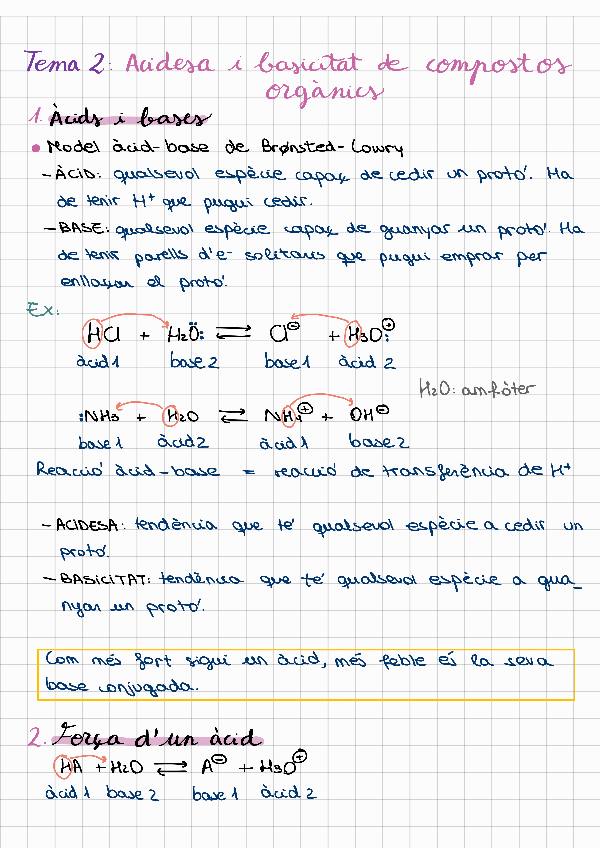 Tema 2: Acidesa i basicitat de compostos
orgànics
1. Àcids i bases
• Model àcid-base de Brønsted-Lowry
- ÀCID: qualsevol espècie capaç de cedir un protó. Ha
de tenir H⁺ que pugui cedir.
- BASE: qualsevol espècie capaç de guanyar un protó. Ha
de tenir parells d'e⁻ solitaris que pugui emprar per
enllaçar el protó.
Ex:
HCl + H₂Ö: ⇌ Cl⊖ + H₃O:⊕
àcid 1 base 2 base 1 àcid 2
H₂O: amfòter
:NH₃ + H₂O ⇌ NH₄⊕ + OH⊖
base 1 àcid 2 àcid 1 base 2
Reacció àcid-base = reacció de transferència de H⁺
- ACIDESA: tendència que té qualsevol espècie a cedir un
protó.
- BASICITAT: tendència que té qualsevol espècie a gua_
nyar un protó.
Com més fort sigui un àcid, més feble és la seva
base conjugada.
2. Força d'un àcid
HA + H₂O ⇌ A⊖ + H₃O⊕
àcid 1 base 2 base 1 àcid 2